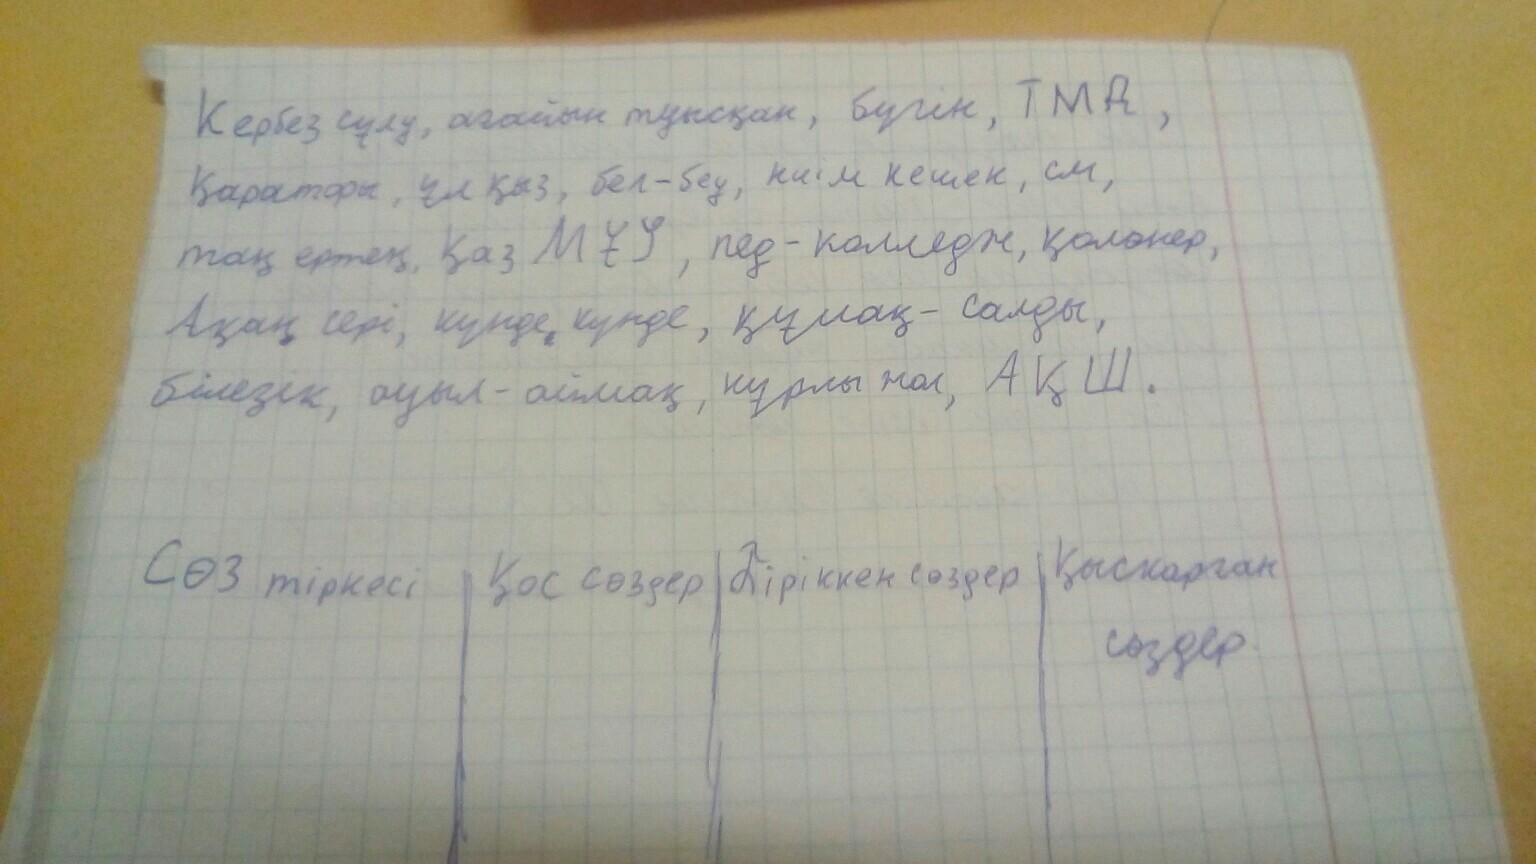 Кербез сұлу, ағайын туысқан, бүгін, ТМД,
Қараторы, ұл қыз, бел-беу, киім кешек, см,
таң ертең, Қаз МҰУ, пед-колледж, қолөнер,
Ақан сері, күнде күнде, құмақ-салды,
білезік, ауыл-аймақ, нұрлы жол, АҚШ.
Сөз тіркесі Қос сөздер Біріккен сөздер Қысқарған
сөздер